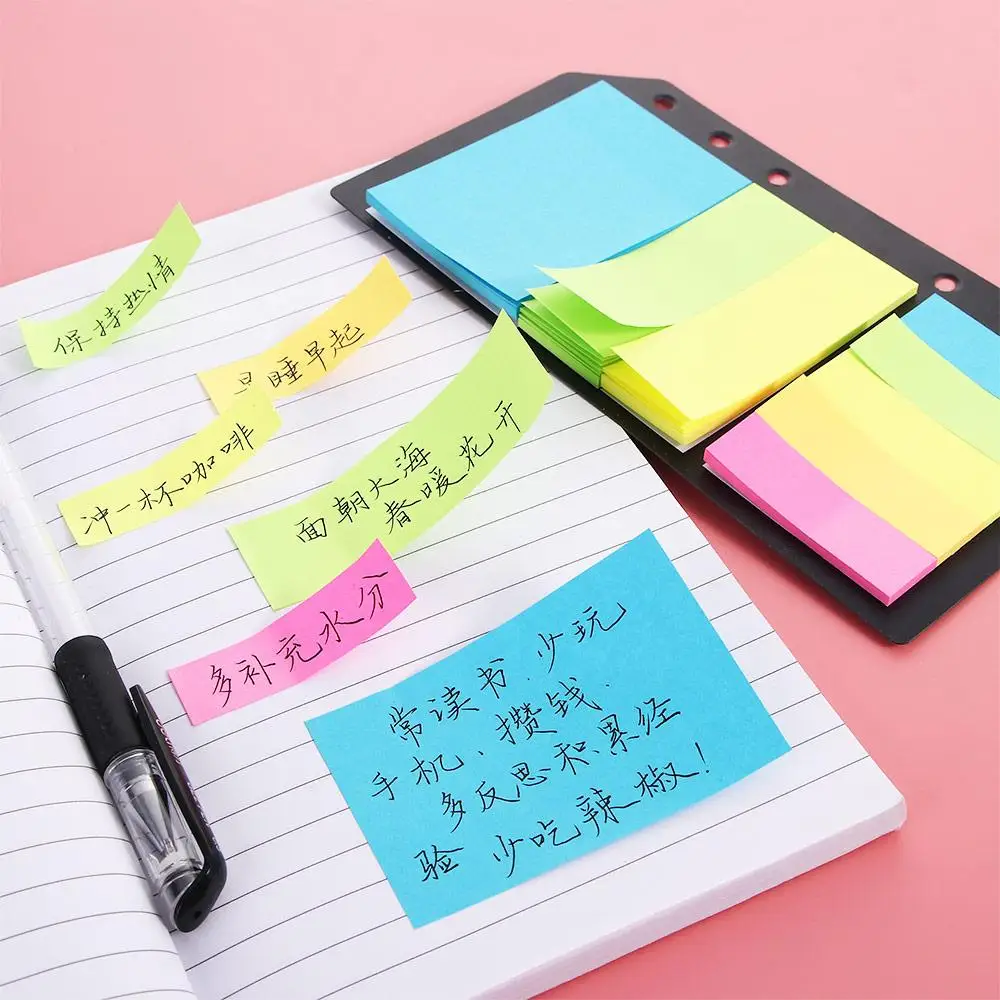 保持热情
早睡早起
冲一杯咖啡
面朝大海
春暖花开
多补充水分
常读书.少玩
手机、攒钱.
多反思和累经
验 少吃辣椒!